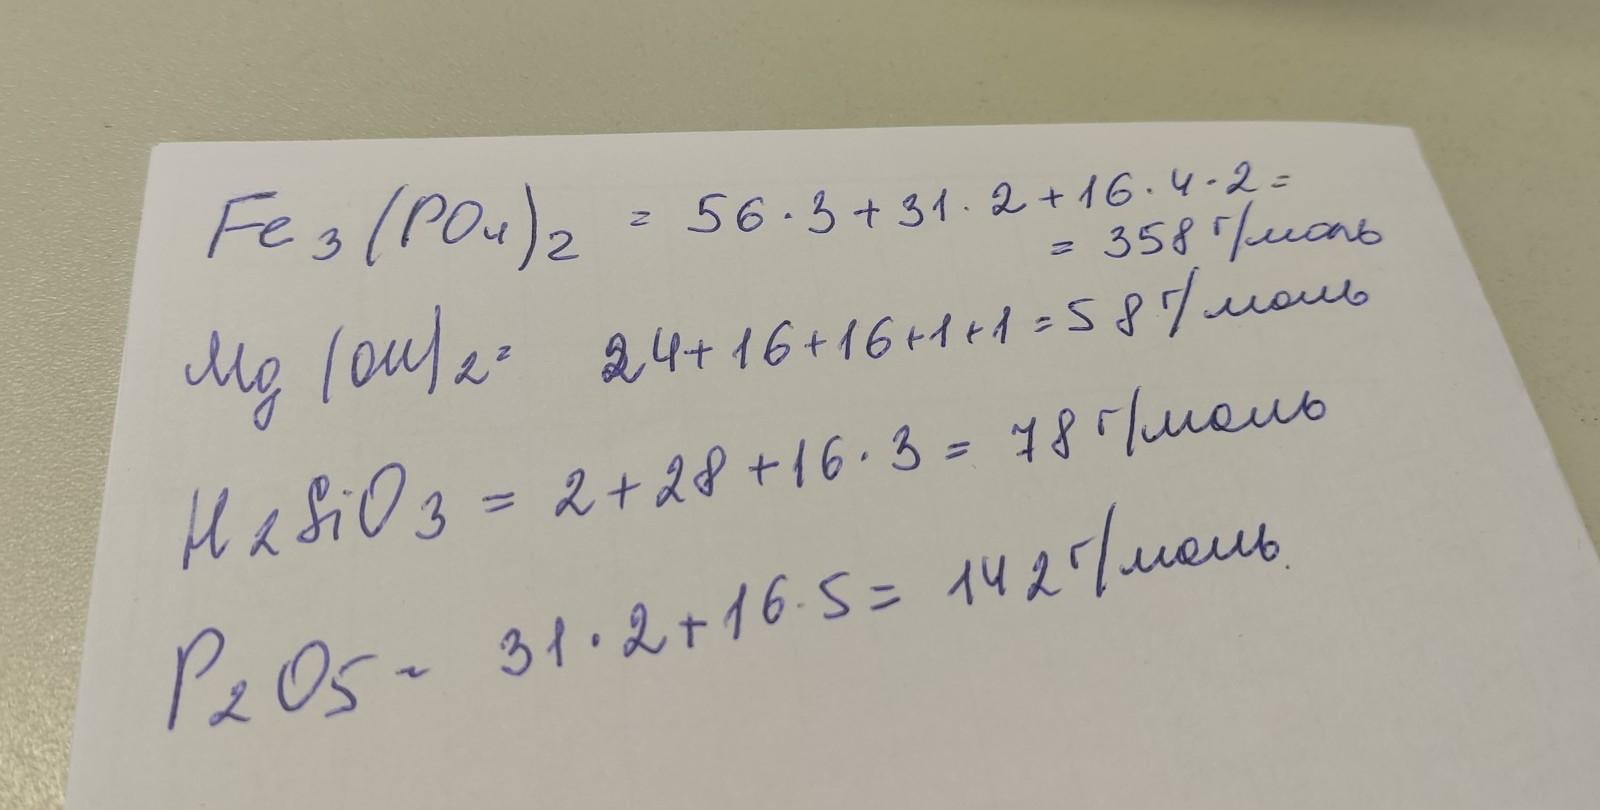 Fe₃(PO₄)₂ = 56·3+31·2+16·4·2=
= 358 г/моль
Mg(OH)₂= 24+16+16+1+1=58 г/моль
H₂SiO₃ = 2+28+16·3= 78 г/моль
P₂O₅ - 31·2+16·5= 142 г/моль.